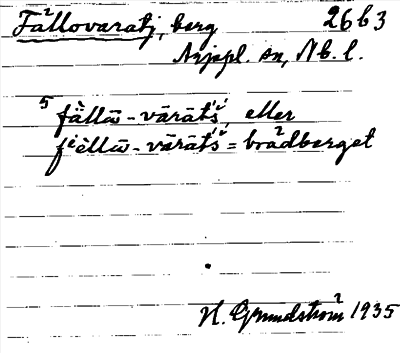 Fållovaratj, berg 26 b 3
Arjepl. sn, Nb. l.
5 fällω̄ - vārāts̀́, eller
fiällω̄ - vārāts̀́ = brådberget
H. Grundström 1935